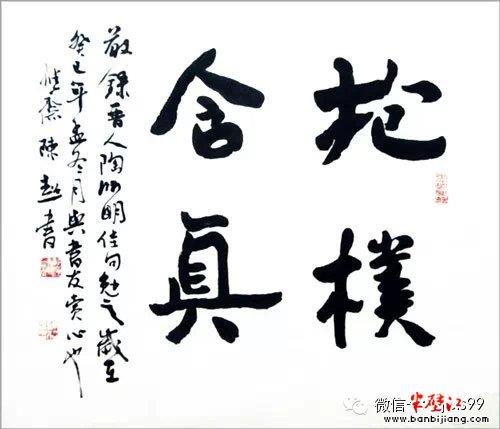 抱樸
含真
敬錄晋人陶淵明佳句勉之歲在
癸巳年孟冬月與書友賞心也
齋陳超書
微信
s99
半壁江
www.banbijiang.com